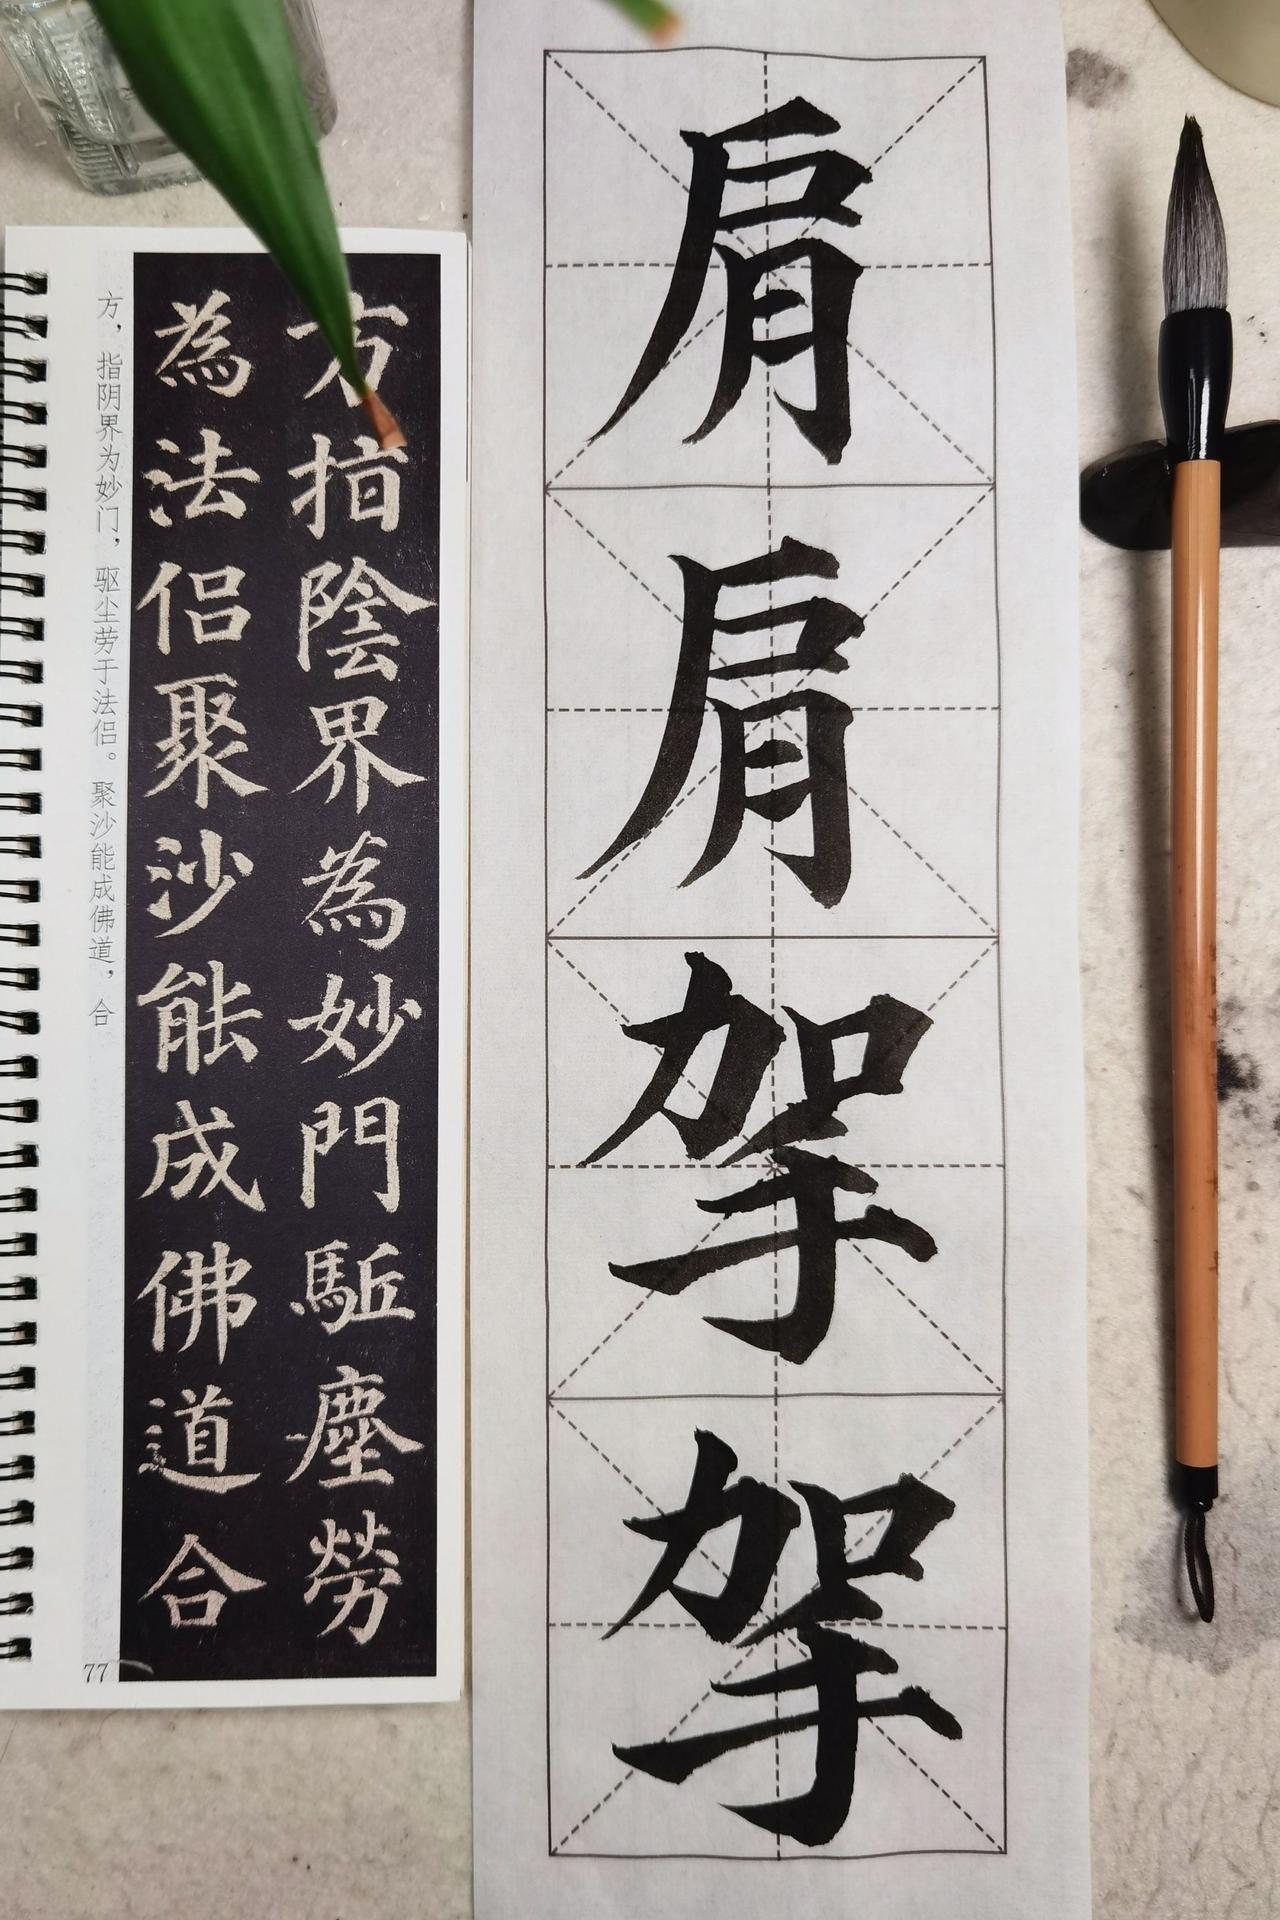 方指陰界為妙門駈塵勞
為法侣聚沙能成佛道合
方，指阴界为妙门，驱尘劳于法侣。聚沙能成佛道，合
77
肩
肩